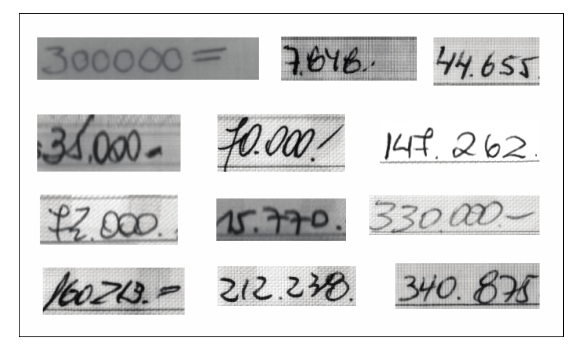 300000= 7.646.. 44.655
35.000.- 70.000./ 147.262.
72.000. 15.770. 330.000.-
160213.= 212.238. 340.875